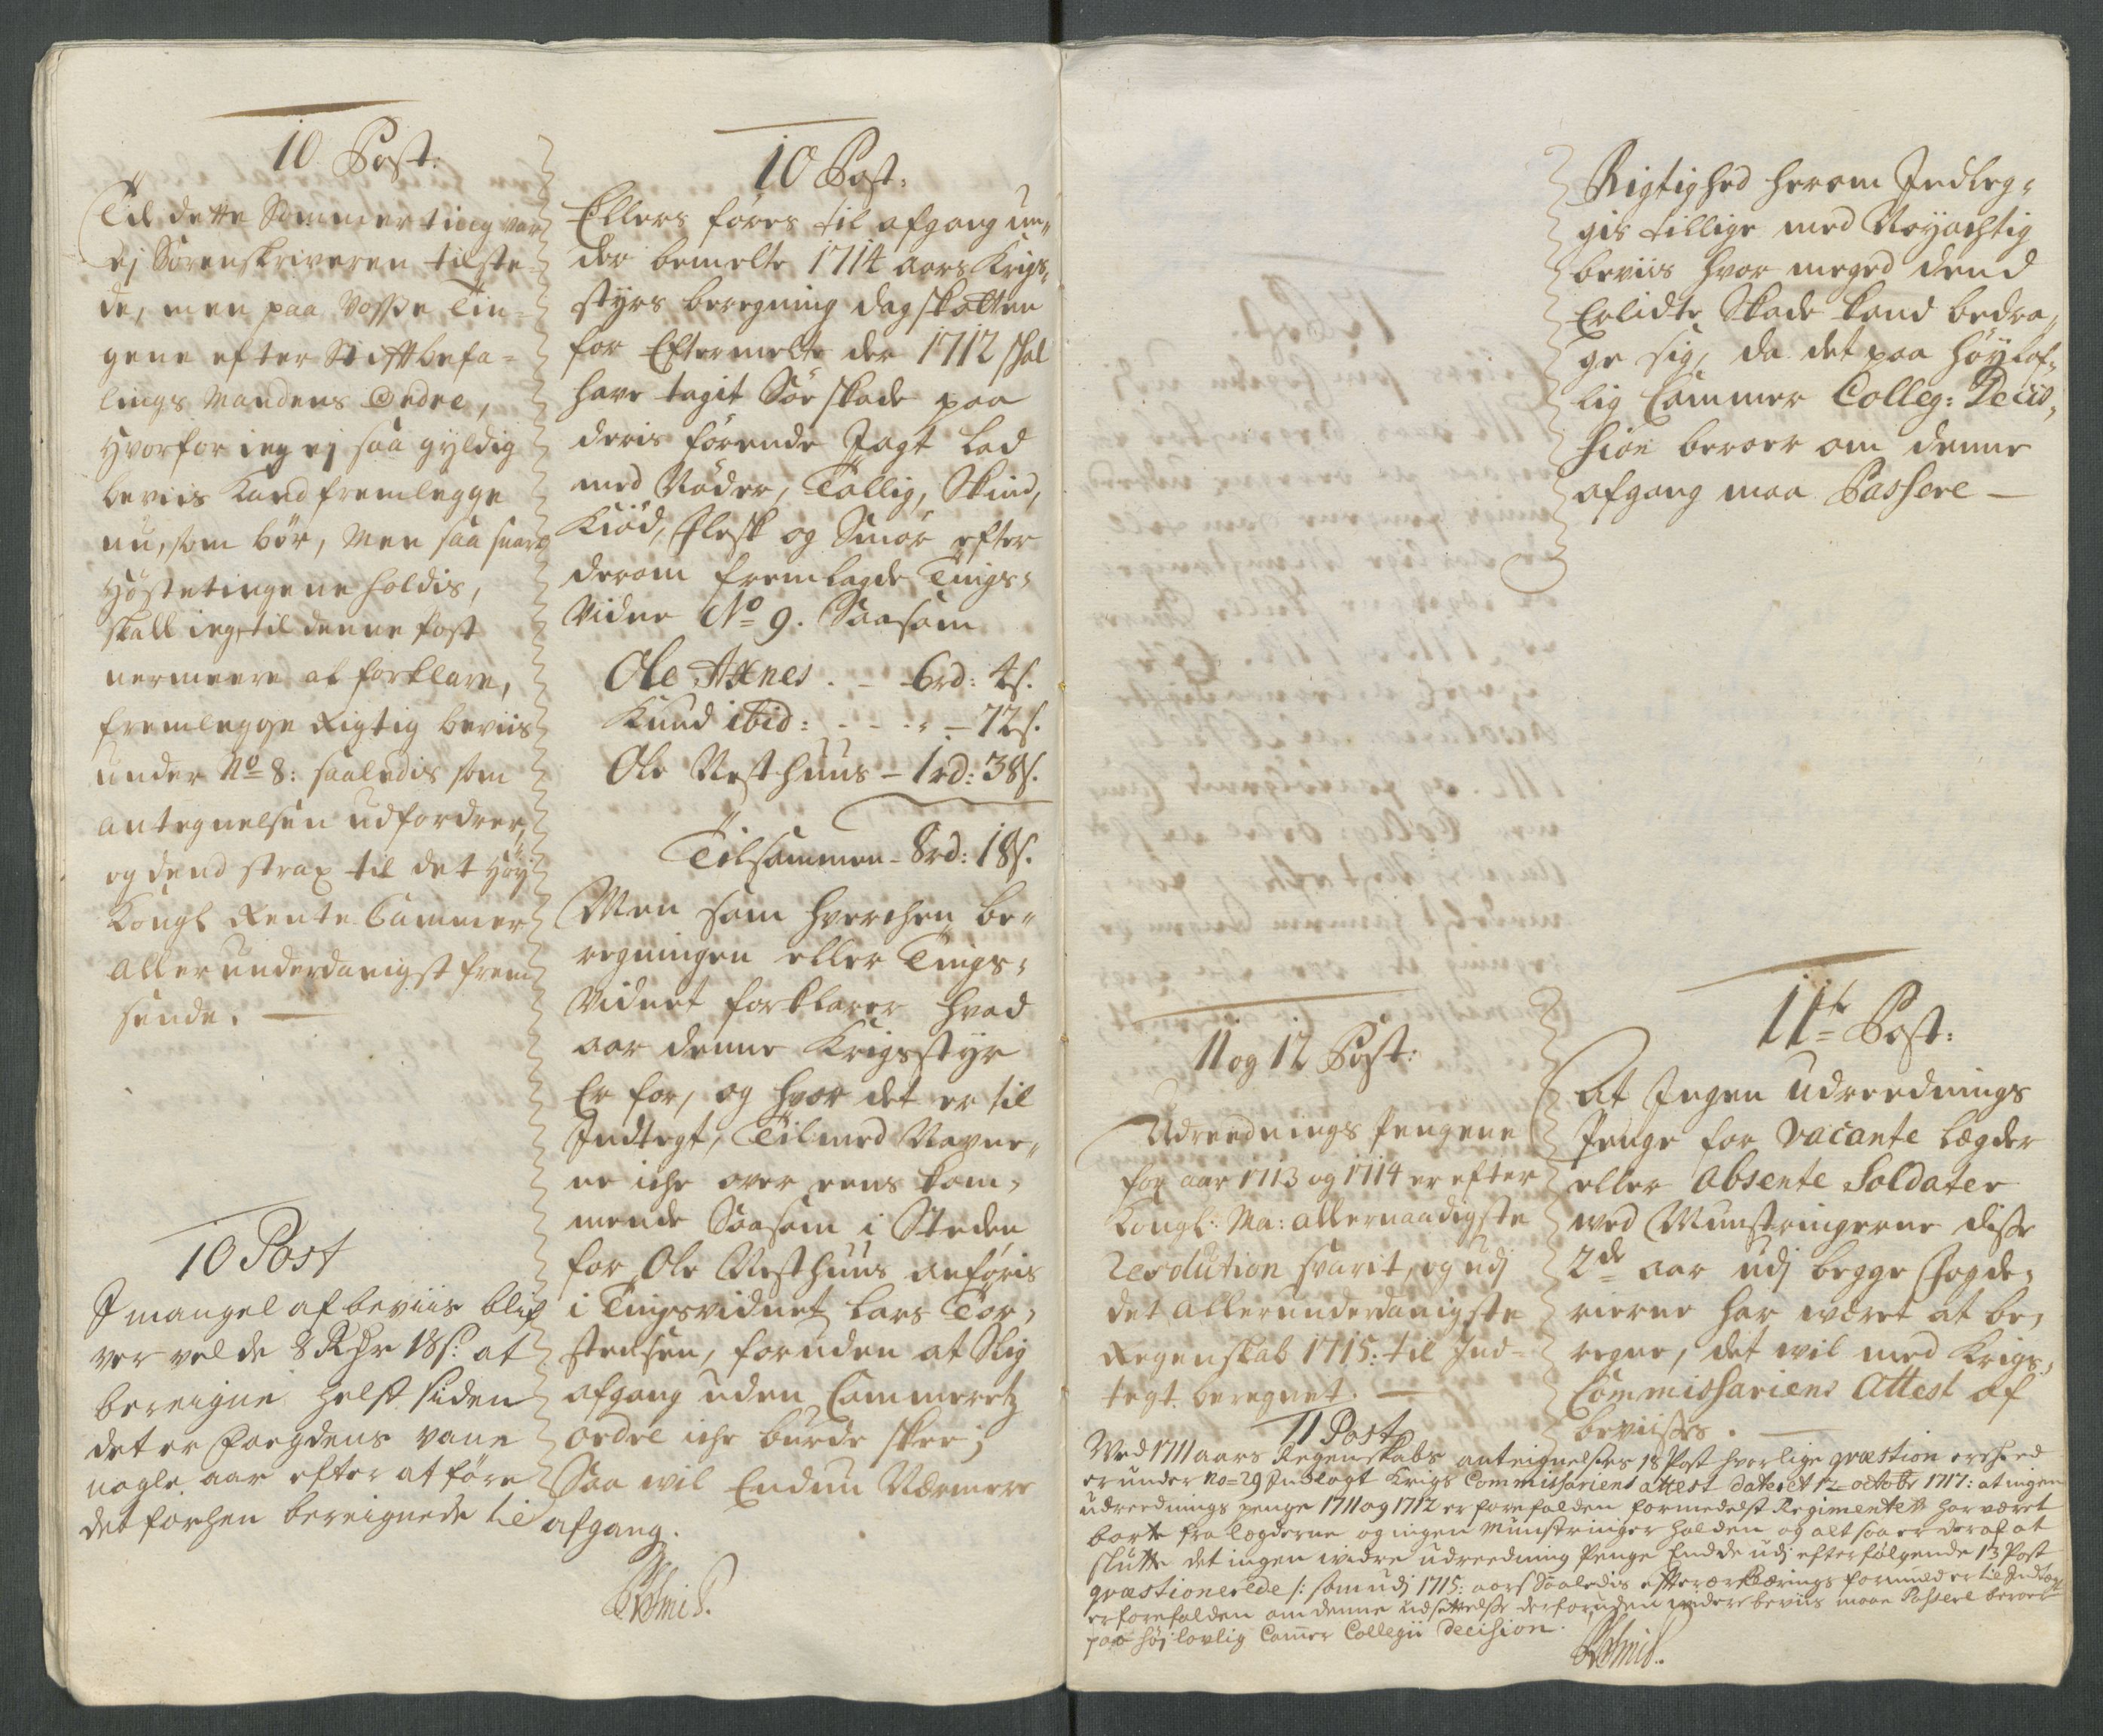 10 Post:
Til dette Sommerting var
ej Sorenskriveren tilste-
de, men paa Vosse Tin-
gene efter Stiftbefa-
lings Mandens Ordre,
Hvorfor ieg ej saa gyldig
beviis kand fremlegge
nu, som bör, Men saa snart
Höstetingene holdis,
skall ieg, til denne Post
nermeere at forklare,
fremlegge Rigtig beviis
under No 8: saaledis som
antegnelsen udfordrer,
og dend strax til det Höy
Kongl Rente Cammer
Allerunderdanigst frem
sende. —
10 Post
I mangel af beviis blif
ver vel de 8 Rdr 18 s: at
bereigne helst siden
det er Foegdens vane
nogle aar efter at före
det forhen bereignede til afgang.
10 Post:
Ellers föres til afgang un-
der bemelte 1714 aars Krigs-
styrs beregning dagskatten
for Eftermelte der 1712 skal
have tagit Söe skade paa
deris förende Jagt lad
med Röder, Tallig, Skind,
Kiöd, Flesk og Smör efter
derom fremlagde Tings-
Vidne No 9. Saasom
Ole Axnes . – 6rd: 4s.
Knud ibid: - - - – 72s.
Ole Nesthuus – 1rd: 38s.
Tilsammen – 8rd: 18s.
Men som hverchen be-
regningen eller Tings-
Vidnet forklarer hvad
aar denne Krigsstyr
Er for, og hvor det er til
Indtegt, Tilmed Navne-
ne iche over eens kom-
mende Saasom i Steden
for Ole Nesthuus anföris
i Tingsvidnet Lars Tor-
stensen, foruden at Slig
afgang uden Cammeretz
ordre iche burde skee;
Saa vil Endnu Nærmere
Rigtighed herom Indleg-
gis tillige med Nöyachtig
beviis hvor meged dend
Erlidte Skade kand bedra-
ge sig, da det paa Höylof-
lig Cammer Colleg: Decis-
sion beroer om denne
afgang maa Passere —
11 og 12 Post:
Udreednings Pengene
for aar 1713 og 1714 er efter
Kongl: Ma: allernaadigste
Resolution svarit, og udj
det allerunderdanigste
Regenskab 1715: til Ind-
tegt beregnet. —
11te Post:
At Ingen Udreednings
Penge for vacante Lægder
eller absente Soldater
wed Munstringerne disse
2de aar udj begge Fogde-
rierne har været at be-
regne, det vil med Krigs-
Commissariens Attest af
beviisses. —
11 Post
Wed 1711 aars Regenskabs antegnelsers 18 Post hvorlige qvæstion er skeed
er under No= 29 Indlagt Krigs Commissariens attest dateret 12= octobr 1717: at ingen
udreednings penge 1711 og 1712 er forefalden formedelst Regimentet har været
borte fra lægderne og ingen Munstringer holden og alt saa er deraf at
slutte det ingen widre udreedning Penge End de udj efterfølgende 13 Post
qvæstionerede /: som udj 1715: aars Saaledis efter erklærings formeld er til Indtægt
er forefalden om denne udsættelse derforuden widere beviis maae Passere beroer
paa höjlovlig Camer Collegii Decision.